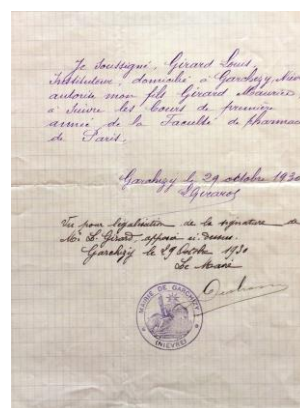 Je soussigné, Girard Louis,
Instituteur, domicilié à Garchizy, Nièvre
autorise mon fils Girard Maurice
à suivre les Cours de première
année de la Faculté de Pharmacie
de Paris.
Garchizy le 29 octobre 1930
L Girard
Vu pour légalisation de la signature de
Mr L. Girard, apposée ci-dessus.
Garchizy le 29 Octobre 1930
Le Maire
MAIRIE DE GARCHIZY
(NIEVRE)